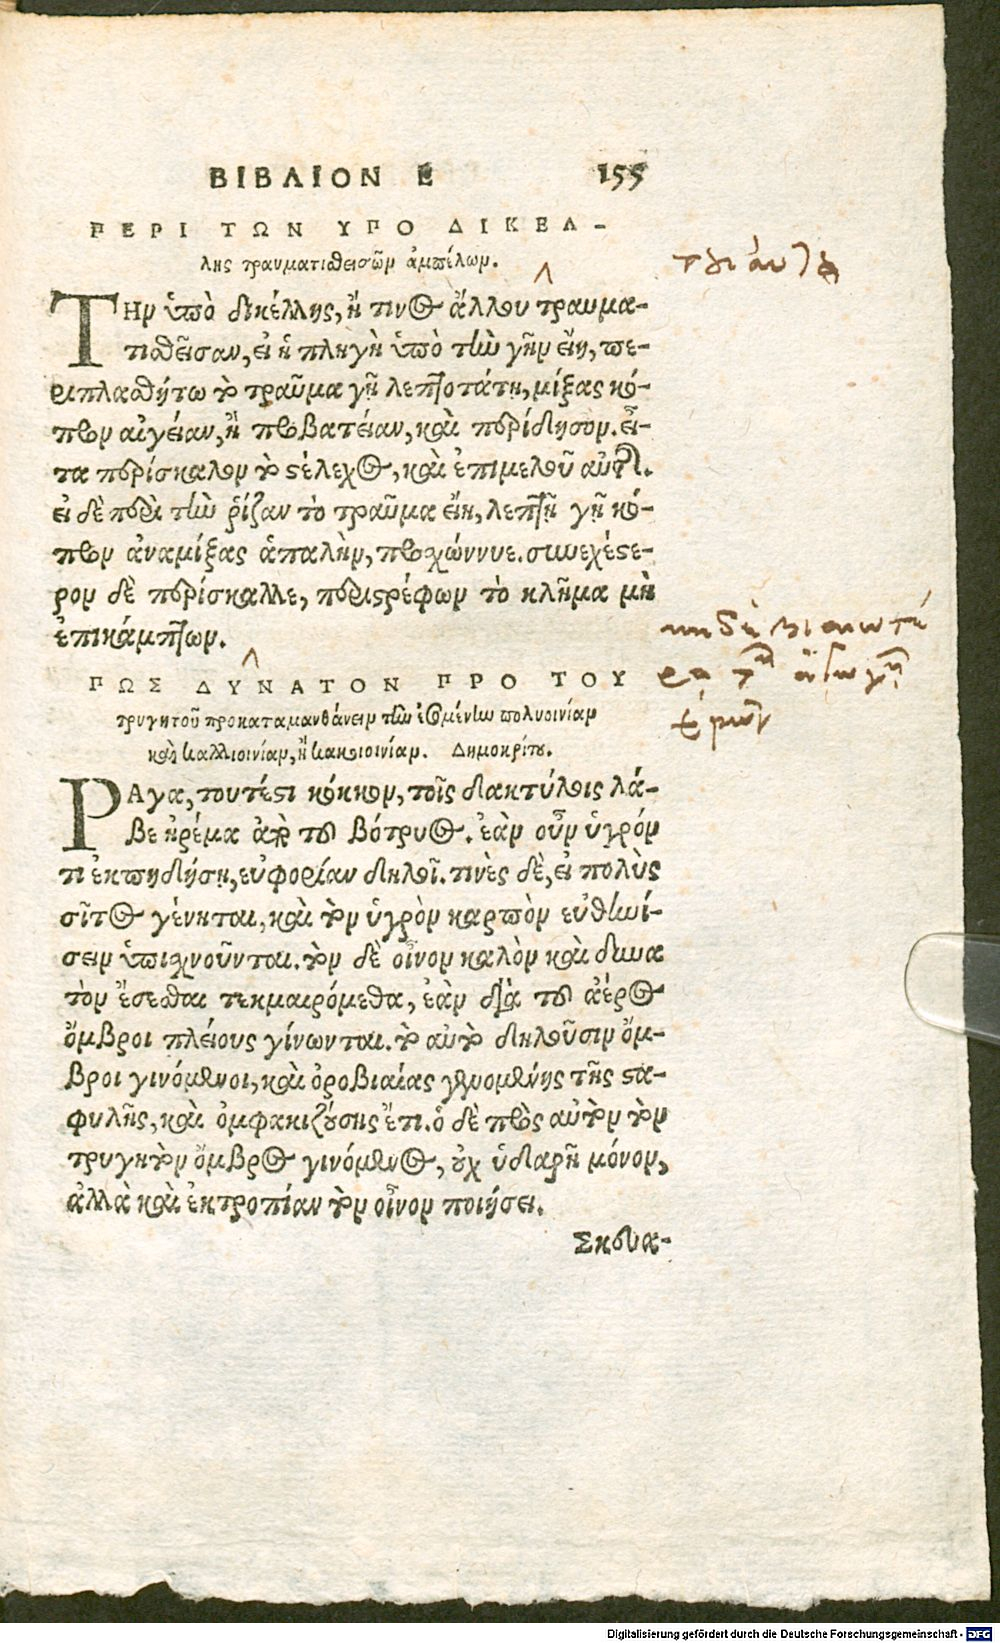 ΒΙΒΛΙΟΝ Ε 155
ΠΕΡΙ ΤΩΝ ΥΠΟ ΔΙΚΕΛ-
λης τραυματισθεισῶν ἀμπέλων.
ΤΗν ὑπὸ δικέλλης, ἤ τινος ἄλλου τραυμα-
τισθεῖσαν, εἰ ἡ πληγὴ ὑπὸ τὴν γῆν εἴη, πε-
ριπλασθήτω τὸ τραῦμα γῇ λεπτοτάτῃ, μίξας κό-
προν αἰγείαν, ἢ προβατείαν, καὶ περίδησον. εἶ-
τα περίσκαλον τὸ στέλεχος, καὶ ἐπιμελοῦ αὐτοῦ.
εἰ δὲ περὶ τὴν ῥίζαν τὸ τραῦμα εἴη, λεπτῇ γῇ κό-
προν ἀναμίξας ἁπαλὴν, προχώννυε. συνεχέστε-
ρον δὲ περίσκαλλε, περιστρέφων τὸ κλῆμα μὴ
ἐπικάμπτων.
ΠΩΣ ΔΥΝΑΤΟΝ ΠΡΟ ΤΟΥ
τρυγητοῦ προκαταμανθάνειν τὴν ἐσομένην πολυοινίαν
καὶ καλλιοινίαν, ἢ κακοινίαν. Δημοκρίτου.
ΡΑγα, τουτέστι κόκκον, τοῖς δακτύλοις λά-
βε ἠρέμα ἀπὸ τοῦ βότρυος. ἐὰν οὖν ὑγρόν
τι ἐκπηδήσῃ, εὐφορίαν δηλοῖ. τινὲς δὲ, εἰ πολὺς
σῖτος γένηται, καὶ τὸν ὑγρὸν καρπὸν εὐθηνή-
σειν ὑπισχνοῦνται. τὸν δὲ οἶνον καλὸν καὶ δυνα
τὸν ἔσεσθαι τεκμαιρόμεθα, ἐὰν διὰ τοῦ ἀέρος
ὄμβροι πλείους γίνωνται. τὸ αὐτὸ δηλοῦσιν ὄμ-
βροι γινόμενοι, καὶ ὀροβιαίας γενομένης τῆς στα-
φυλῆς, καὶ ὀμφακιζούσης ἔτι. ὁ δὲ πρὸς αὐτὸν τὸν
τρυγητὸν ὄμβρος γινόμενος, οὐχ ὑδαρῆ μόνον,
ἀλλὰ καὶ ἐκτροπίαν τὸν οἶνον ποιήσει.
Σκευα-
Digitalisierung gefördert durch die Deutsche Forschungsgemeinschaft - DFG